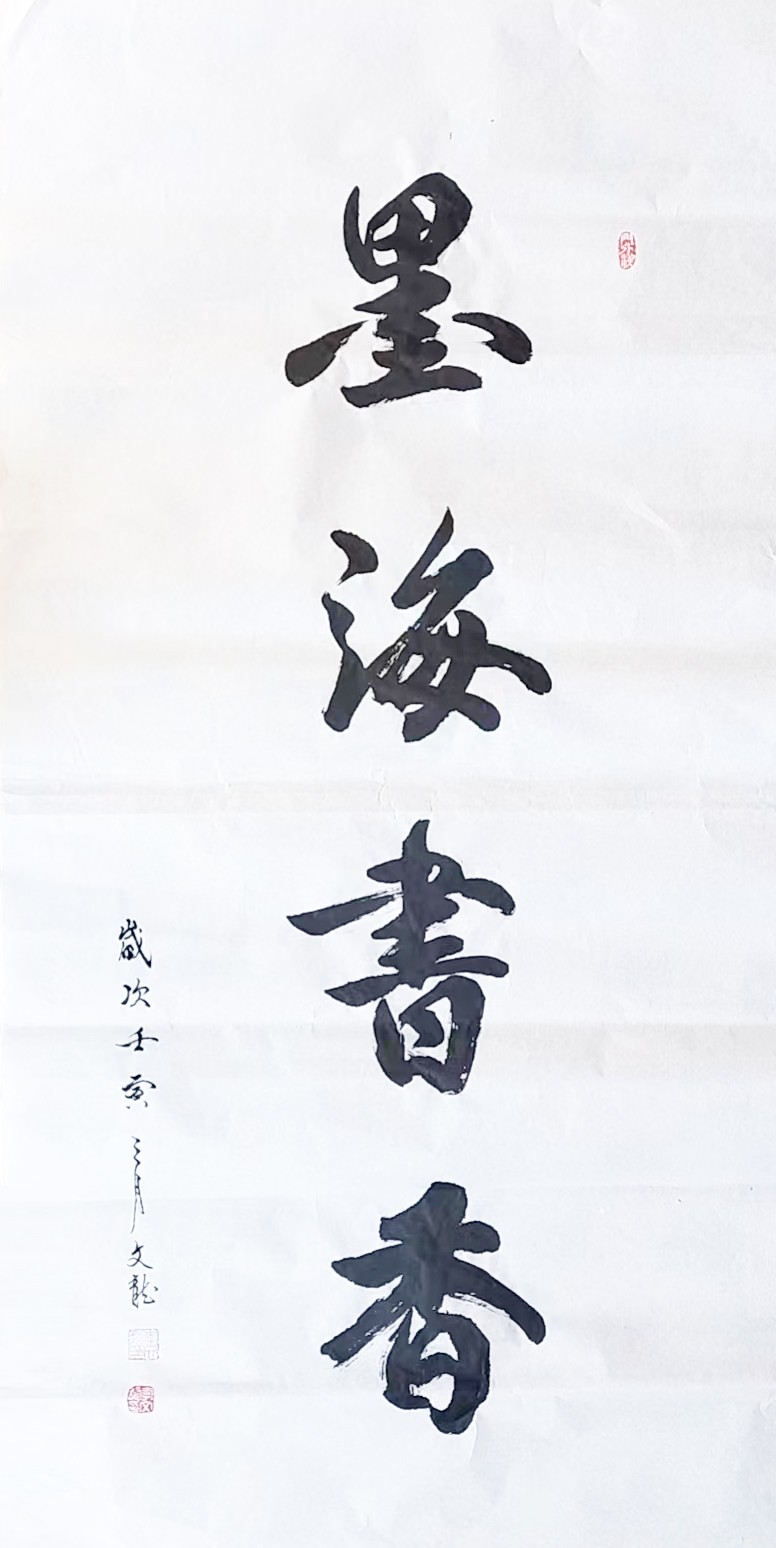 墨海書香
歲次壬寅三月文龍